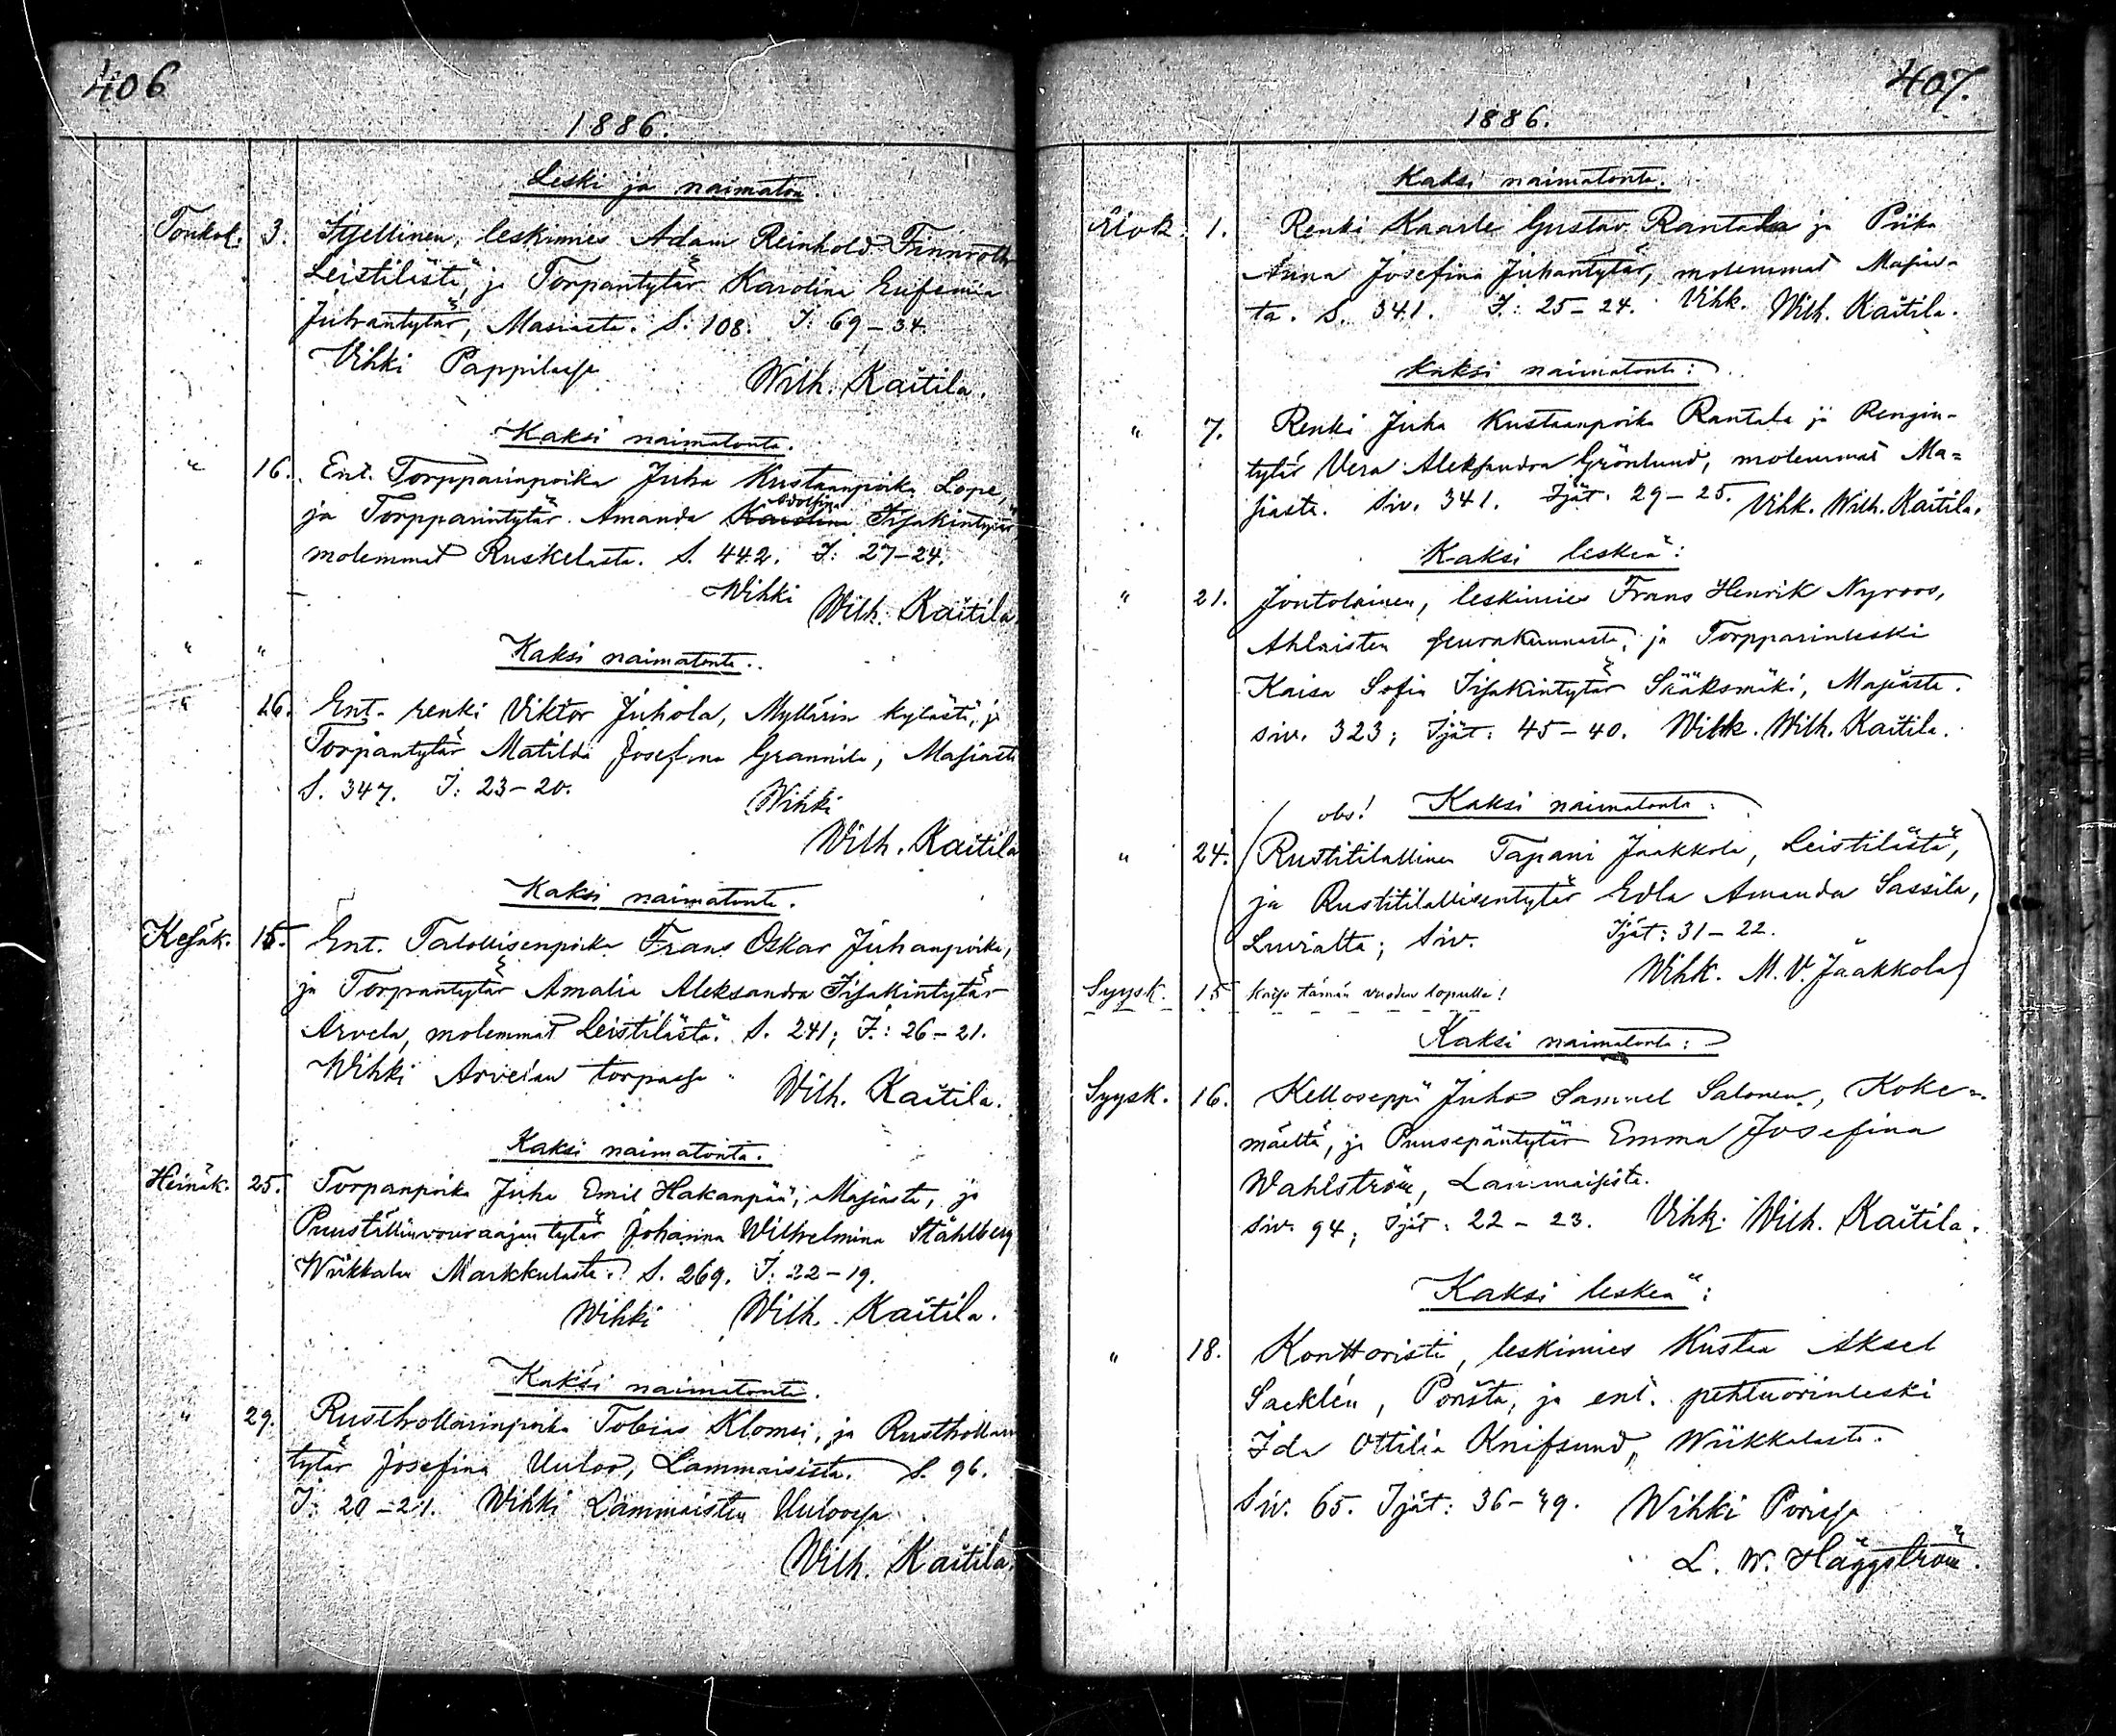 406
1886.
Leski ja naimaton.
Toukok. 3. Itsellinen, leskimies Adam Reinhold Finnroth
Leistilästä, ja Torpantytär Karolina Eufemia
Juhantytär, Masiasta. S. 108. I: 69-34.
Vihki Pappilassa
Wilh. Kaitila.
Kaksi naimatonta.
" 16. Ent. Torpparinpoika Juha Kustaanpoika Lope,
Adolfina
ja Torpparintytär Amanda Karolina Iisakintytär
molemmat Ruskelasta. S. 442. I: 27-24.
Wihki
Wilh. Kaitila
" " Kaksi naimatonta.
" 26. Ent. renki Viktor Juhola, Myllärin kylästä, ja
Torpantytär Matilda Josefina Grannila, Masiasta
S. 347. I: 23-20.
Wihki
Wilh. Kaitila
Kaksi naimatonta.
Kesäk. 15. Ent. Talollisenpoika Frans Oskar Juhanpoika,
ja Torpantytär Amalia Aleksandra Iisakintytär
Arvela, molemmat Leistilästä. S. 241; I.: 26-21.
Wihki Arvelan torpassa
Wilh. Kaitila.
Kaksi naimatonta.
Heinäk. 25. Torpanpoika Juha Emil Hakanpää, Masiasta, ja
Puustellinvouraajan tytär Johanna Wilhelmina Ståhlberg
Wiikkalan Markkulasta. S. 269. I: 22-19.
Wihki Wilh. Kaitila.
Kaksi naimatonta.
" 29. Rusthollarinpoika Tobias Klomsi, ja Rusthollarin
tytär Josefina Uuloo, Lammaisista. S. 96.
I: 20-21. Wihki Lammaisten Uuloossa
Wilh. Kaitila.
407.
1886.
Kaksi naimatonta.
Elok. 1. Renki Kaarle Gustav Rantala ja Piika
Anna Josefina Juhantytär, molemmat Masias-
ta. S. 341. I.: 25-24. Vihk. Wilh. Kaitila.
Kaksi naimatonta:
" 7. Renki Juha Kustaanpoika Rantala ja Rengin-
tytär Vera Aleksandra Grönlund, molemmat Ma=
siasta. Siv. 341. Ijät. 29-25. Vihk. Wilh. Kaitila.
Kaksi leskeä:
" 21. Joutolainen, leskimies Frans Henrik Nyroos,
Ahlaisten seurakunnasta, ja Torpparinleski
Kaisa Sofia Iisakintytär Sääksmäki, Masiasta.
siv. 323; Ijät: 45-40. Wihk. Wilh. Kaitila.
obs! Kaksi naimatonta:
" 24. (Rustitilallinen Tapani Jaakkola, Leistilästä,
ja Rustitilallisentytär Edla Amanda Sassila,
Luvialta; Siv. Ijät: 31-22.
Wihk. M. V. Jaakkola)
Syysk. 15 katso tämän vuoden lopulla!
Kaksi naimatonta:
Syysk. 16. Kelloseppä Juho Samuel Salonen, Koke=
mäeltä, ja Puusepäntytär Emma Josefina
Wahlström, Lammaisista.
Siv. 94; Ijät: 22-23. Vihk. Wilh. Kaitila.
Kaksi leskeä:
" 18. Konttoristi, leskimies Kustaa Aksel
Sacklén, Porista, ja ent. pehtuorinleski
Ida Ottilia Knifsund, Wiikkalasta.
Siv. 65. Ijät: 36-49. Wihki Porissa
L. W. Häggström.